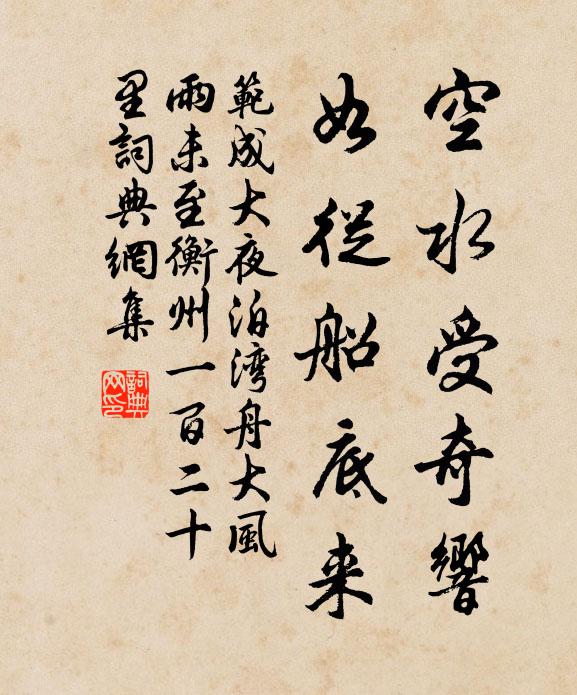 空水受奇響
如從船底来
範成大夜泊湾舟大風
雨未至衡州一百二十
里詞典網集
詞典
网印